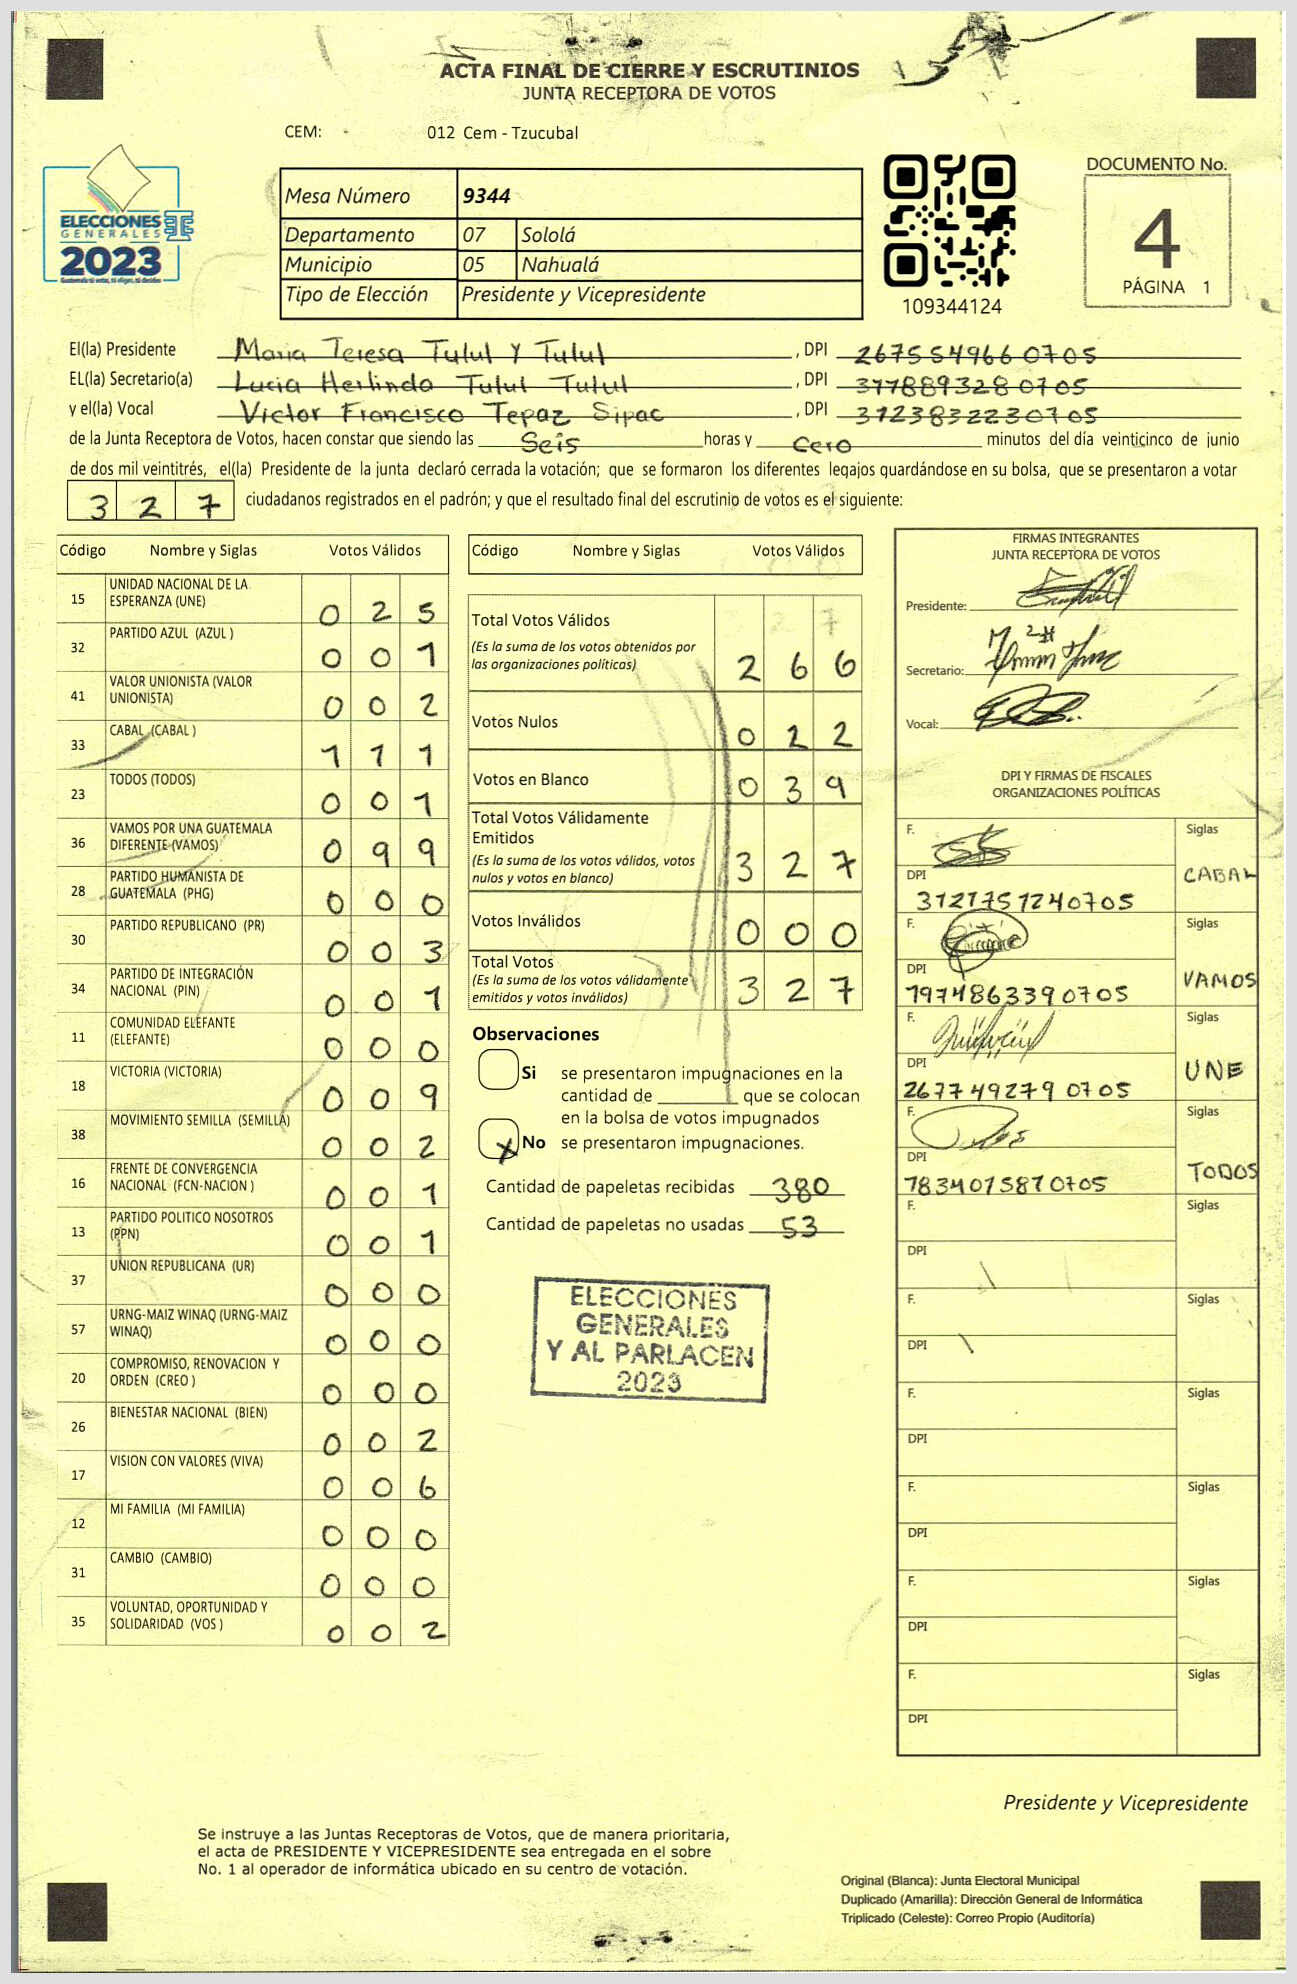 ACTA FINAL DE CIERRE Y ESCRUTINIOS
JUNTA RECEPTORA DE VOTOS
CEM: - 012 Cem - Tzucubal
ELECCIONES
GENERALES
2023
Mesa Número 9344
Departamento 07 Sololá
Municipio 05 Nahualá
Tipo de Elección Presidente y Vicepresidente
109344124
DOCUMENTO No.
4
PÁGINA 1
El(la) Presidente Maria Teresa Tulul Y Tulul, DPI 2675549660705
EL(la) Secretario(a) Lucia Herlinda Tulul Tulul, DPI 3778893280705
y el(la) Vocal Victor Francisco Tepaz Sipac, DPI 3123832230705
de la Junta Receptora de Votos, hacen constar que siendo las Seis horas y Cero minutos del día veinticinco de junio
de dos mil veintitrés, el(la) Presidente de la junta declaró cerrada la votación; que se formaron los diferentes legajos guardándose en su bolsa, que se presentaron a votar
327 ciudadanos registrados en el padrón; y que el resultado final del escrutinio de votos es el siguiente:
Código Nombre y Siglas Votos Válidos
15 UNIDAD NACIONAL DE LA ESPERANZA (UNE) 025
32 PARTIDO AZUL (AZUL ) 001
41 VALOR UNIONISTA (VALOR UNIONISTA) 002
33 CABAL (CABAL ) 111
23 TODOS (TODOS) 001
36 VAMOS POR UNA GUATEMALA DIFERENTE (VAMOS) 099
28 PARTIDO HUMANISTA DE GUATEMALA (PHG) 000
30 PARTIDO REPUBLICANO (PR) 003
34 PARTIDO DE INTEGRACIÓN NACIONAL (PIN) 001
11 COMUNIDAD ELEFANTE (ELEFANTE) 000
18 VICTORIA (VICTORIA) 009
38 MOVIMIENTO SEMILLA (SEMILLA) 002
16 FRENTE DE CONVERGENCIA NACIONAL (FCN-NACION ) 001
13 PARTIDO POLITICO NOSOTROS (PPN) 001
37 UNION REPUBLICANA (UR) 000
57 URNG-MAIZ WINAQ (URNG-MAIZ WINAQ) 000
20 COMPROMISO, RENOVACION Y ORDEN (CREO ) 000
26 BIENESTAR NACIONAL (BIEN) 002
17 VISION CON VALORES (VIVA) 006
12 MI FAMILIA (MI FAMILIA) 000
31 CAMBIO (CAMBIO) 000
35 VOLUNTAD, OPORTUNIDAD Y SOLIDARIDAD (VOS ) 002
Código Nombre y Siglas Votos Válidos
Total Votos Válidos 266
(Es la suma de los votos obtenidos por
las organizaciones políticas)
Votos Nulos 022
Votos en Blanco 039
Total Votos Válidamente
Emitidos 327
(Es la suma de los votos válidos, votos
nulos y votos en blanco)
Votos Inválidos 000
Total Votos 327
(Es la suma de los votos válidamente
emitidos y votos inválidos)
Observaciones
Si se presentaron impugnaciones en la
cantidad de ________ que se colocan
en la bolsa de votos impugnados
X No se presentaron impugnaciones.
Cantidad de papeletas recibidas 380
Cantidad de papeletas no usadas 53
ELECCIONES
GENERALES
Y AL PARLACEN
2023
FIRMAS INTEGRANTES
JUNTA RECEPTORA DE VOTOS
Presidente:
Secretario:
Vocal:
DPI Y FIRMAS DE FISCALES
ORGANIZACIONES POLÍTICAS
F. Siglas
DPI 3121751240705 CABAL
F. Siglas
DPI 1974863390705 VAMOS
F. Siglas
DPI 2677492790705 UNE
F. Siglas
DPI 7834015810705 TODOS
F. Siglas
DPI
F. Siglas
DPI
F. Siglas
DPI
F. Siglas
DPI
F. Siglas
DPI
F. Siglas
DPI
Presidente y Vicepresidente
Se instruye a las Juntas Receptoras de Votos, que de manera prioritaria,
el acta de PRESIDENTE Y VICEPRESIDENTE sea entregada en el sobre
No. 1 al operador de informática ubicado en su centro de votación.
Original (Blanca): Junta Electoral Municipal
Duplicado (Amarilla): Dirección General de Informática
Triplicado (Celeste): Correo Propio (Auditoría)